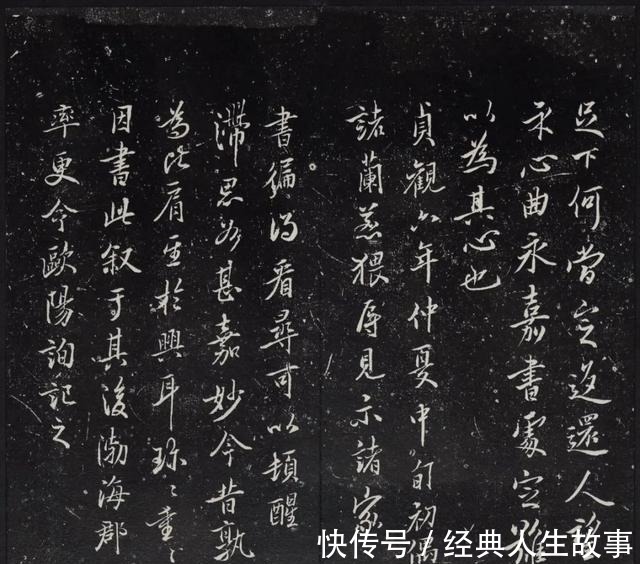 足下何當定還還人
永心曲永嘉書處定
以為其心也
貞觀六年仲夏中旬初偶
諸蘭若猥辱見示諸家
書徧得看尋可以頓醒
滯思為甚嘉妙今昔孰
為比肩至於興耳珍〻重〻
因書此叙于其後渤海郡
率更令歐陽詢記之
快传号/经典人生故事